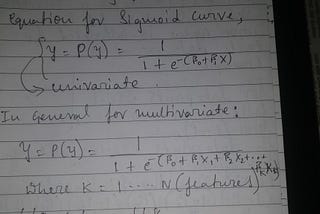 Equation for Sigmoid curve,
y = P(y) = 1 / 1 + e^-(β₀+β₁X)
univariate.
In General for multivariate:
y = P(y) = 1 / 1 + e^-(β₀+β₁X₁+β₂X₂+...+βₖXₖ)
where K = 1 .... N (features)